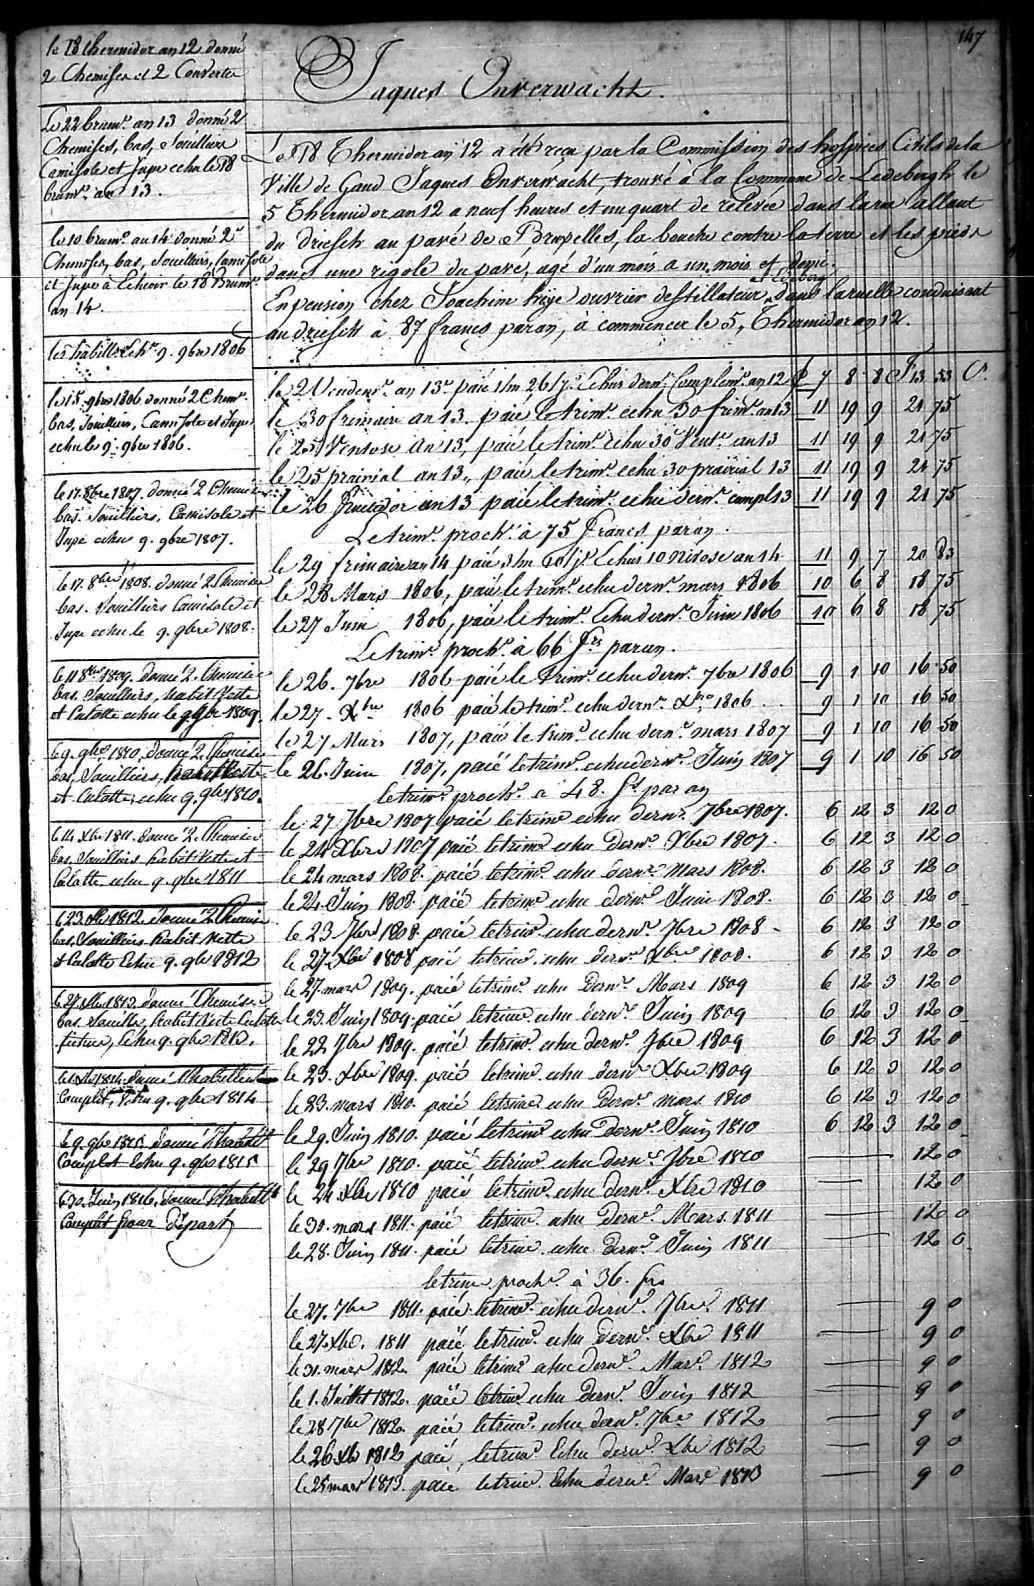 147
Jaques Onverwacht.
le 18 thermidor an 12 donné
2 Chemises et 2 Couvertes
Le 22 brumre. an 13 donné 2
Chemises, bas, Souilliers
Camisole et Jupe echu le 18
brumre. an 13.
le 10 brumre. an 14 donné 2
Chemises, bas, Souilliers, Camisole
et Jupe à Echeoir le 18 Brumre.
an 14.
les habillts. Echus 9. 9bre 1806
le 15 9bre 1806 donné 2 Chemes.
bas, Souilliers, Camisole et Jupe
echu le 9. 9bre 1806.
le 17. 8bre 1807. donné 2 Chemises
bas. Souilliers, Camisole et
Jupe echu 9. 9bre 1807.
le 17. 8bre 1808. donné 2 Chemises
bas. Souilliers Camisole et
Jupe echu le 9. 9bre 1808.
le 11 8bre 1809. donné 2. Chemises
bas. Souilliers, habit Veste
et Culotte echu le 9 9bre 1809.
le 9. 9bre 1810. donné 2. Chemises
bas, Souilliers, habit Veste
et Culotte, echu 9. 9bre 1810.
le 14. Xbre 1811. donné 2. Chemises
bas, Souilliers habit Veste et
Culotte echu 9. 9bre 1811
le 23. 1812. donné 2 Chemises
bas, Souilliers habit Veste
et Culotte Echu 9. 9bre 1812
le 27 1813. donné Chemises
bas. Souilliers, habit Veste Culotte
echu 9. 9bre 1813.
1814. donné l'habillemt
Complet, Echu 9. 9bre 1814
le 9. 9bre 1815. donné l'habillt
Complet Echu 9. 9bre 1815
le 30. Juin 1816, donné l'habillt
Complet pour départ
Le 18 Thermidor an 12 a été reçu par la Commission des hospices Civils de la
Ville de Gand Jaques Onverwacht, trouvé à la Commune de Ledebergh le
5 Thermidor an 12 a neuf heures et un quart de relevée dans la rue allant
du Driesch au pavé de Bruxelles, la bouche contre la terre et les pieds
dans une rigole du pavé, agé d'un mois a un mois et demie.
En pension chez Joachim ouvrier destillateur dans la ruelle conduisant
au driesch à 87 francs par an, à commencer le 5, Thermidor an 12.
le 2 Vendemre. an 13e paié 1/m 26/js. Echus dernr. Complemre. an 12 7 8 8 F 13 53 Cs
le 30 frimaire an 13. paié le trimre. echu 30 frimre. an 13 11 19 9 21 75
le 25 Ventose an 13, paié le trimre. echu 30 Ventse. an 13 11 19 9 21 75
le 25 prairial an 13, paié le trimre. echu 30 prairial 13 11 19 9 21 75
le 26 fructidor an 13 paié le trimre. echu dernr. compl 13 11 19 9 21 75
Le trimre. prochn. à 75 francs par an.
le 29 frimaire an 14 paié 3/m 10/js. Echus 10 Nivose an 14 11 9 7 20 83
le 28 Mars 1806, paié le trimre. echu dernr. mars 1806 10 6 8 18 75
le 27 Juin 1806, paié le trimre. Echu dernr. Juin 1806 10 6 8 18 75
Le trimre. prochn. à 66 frs par an.
le 26. 7bre 1806 paié le trimre. echu dernr. 7bre 1806 9 1 10 16 50
le 27. Xbre 1806 paié le trimre. echu dernr. Xbre 1806 9 1 10 16 50
le 27 Mars 1807, paié le trimre. echu dernr. mars 1807 9 1 10 16 50
le 26. Juin 1807, paié le trimre. echu dernr. Juin 1807 9 1 10 16 50
le trimre. prochn. à 48. frs par an
le 27. 7bre 1807 paié le trimre echu dernr. 7bre 1807. 6 12 3 12 0
le 24 Xbre 1807 paié le trimre. echu dernr. Xbre 1807. 6 12 3 12 0
le 24 mars 1808. paié le trimre. echu dernr. mars 1808. 6 12 3 12 0
le 24. Juin 1808. paié le trimre. echu dernr. Juin 1808. 6 12 3 12 0
le 23 7bre 1808. paié le trimre. echu dernr. 7bre 1808 - 6 12 3 12 0
le 27 Xbre 1808 paié le trimre. echu dernr. Xbre 1808. 6 12 3 12 0
le 27. mars 1809. paié le trimre. echu dernr. Mars 1809 6 12 3 12 0
le 23. Juin 1809. paié le trimre echu dernr. Juin 1809 6 12 3 12 0
le 22 7bre 1809. paié le trimre. echu dernr. 7bre 1809 6 12 3 12 0
le 23. Xbre 1809. paié le trimre. echu dernr Xbre 1809 6 12 3 12 0
le 23. mars 1810. paié le trimre. echu dernr. mars 1810 6 12 3 12 0
le 29. Juin 1810. paié le trimre. echu dernr. Juin 1810 6 12 3 12 0
le 29 7bre 1810. paié le trimre. echu dernr. 7bre 1810 12 0
le 24 Xbre 1810 paié le trimre. echu dernr. Xbre 1810 12 0
le 30. mars 1811. paié le trimre. echu dernr. Mars. 1811 12 0
le 28. Juin 1811. paié le trimre. echu dernr. Juin 1811 12 0
le trimre. prochn. à 36. frs
le 27. 7bre 1811. paié le trimre. echu dernr. 7bre. 1811 9 0
le 27. Xbre. 1811 paié le trimre. echu dernr. Xbre 1811 9 0
le 31. mars 1812 paié le trimre echu dernr. Mars. 1812 9 0
le 1. Juillet 1812. paié le trimre echu dernr. Juin 1812 9 0
le 28 7bre 1812. paié le trimre. echu dernr. 7bre 1812 9 0
le 26 Xbre 1812 paié, le trimre. Echu dernr. Xbre 1812 9 0
le 25 mars 1813. paié le trimre. Echu dernr. Mars 1813 9 0